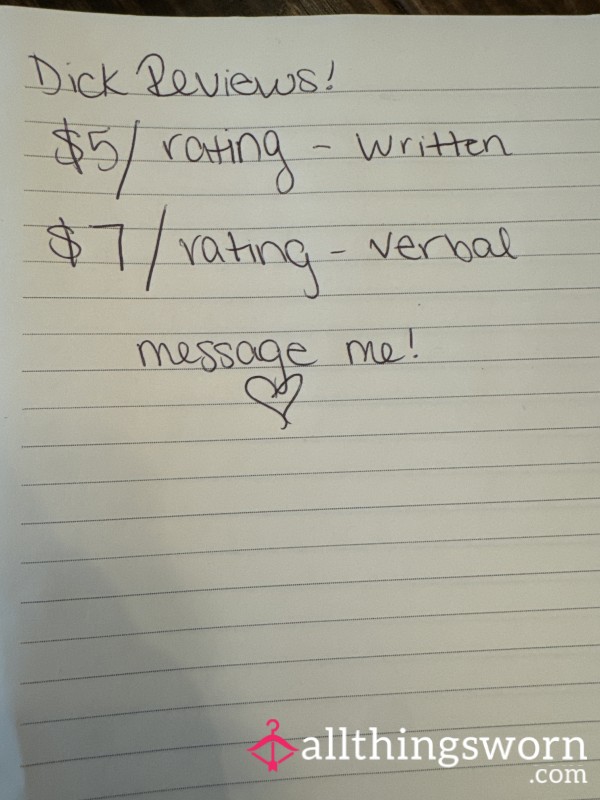 Dick Reviews!
$5/ rating - written
$7/rating - verbal
message me!
allthingsworn
.com